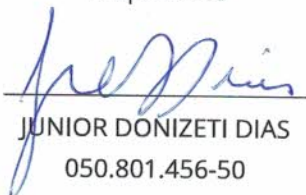 JUNIOR DONIZETI DIAS
050.801.456-50